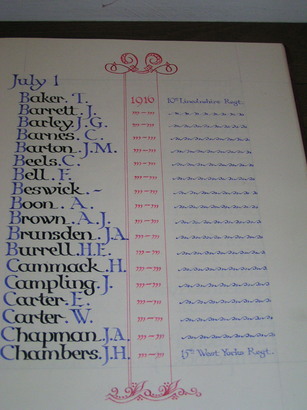 July 1
Baker. T. 1916 10th Lincolnshire Regt.
Barrett. J. "—"
Barley. J. G. "—"
Barnes. C. "—"
Barton. J.M. "—"
Beels. C. "—"
Bell. F. "—"
Beswick. ~ "—"
Boon. A. "—"
Brown. A.J. "—"
Brunsden. J.A. "—"
Burrell. H.E. "—"
Cammack. H. "—"
Campling. J. "—"
Carter. E. "—"
Carter. W. "—"
Chapman. J.A. "—"
Chambers. J.H. "—" 15th West Yorks Regt.